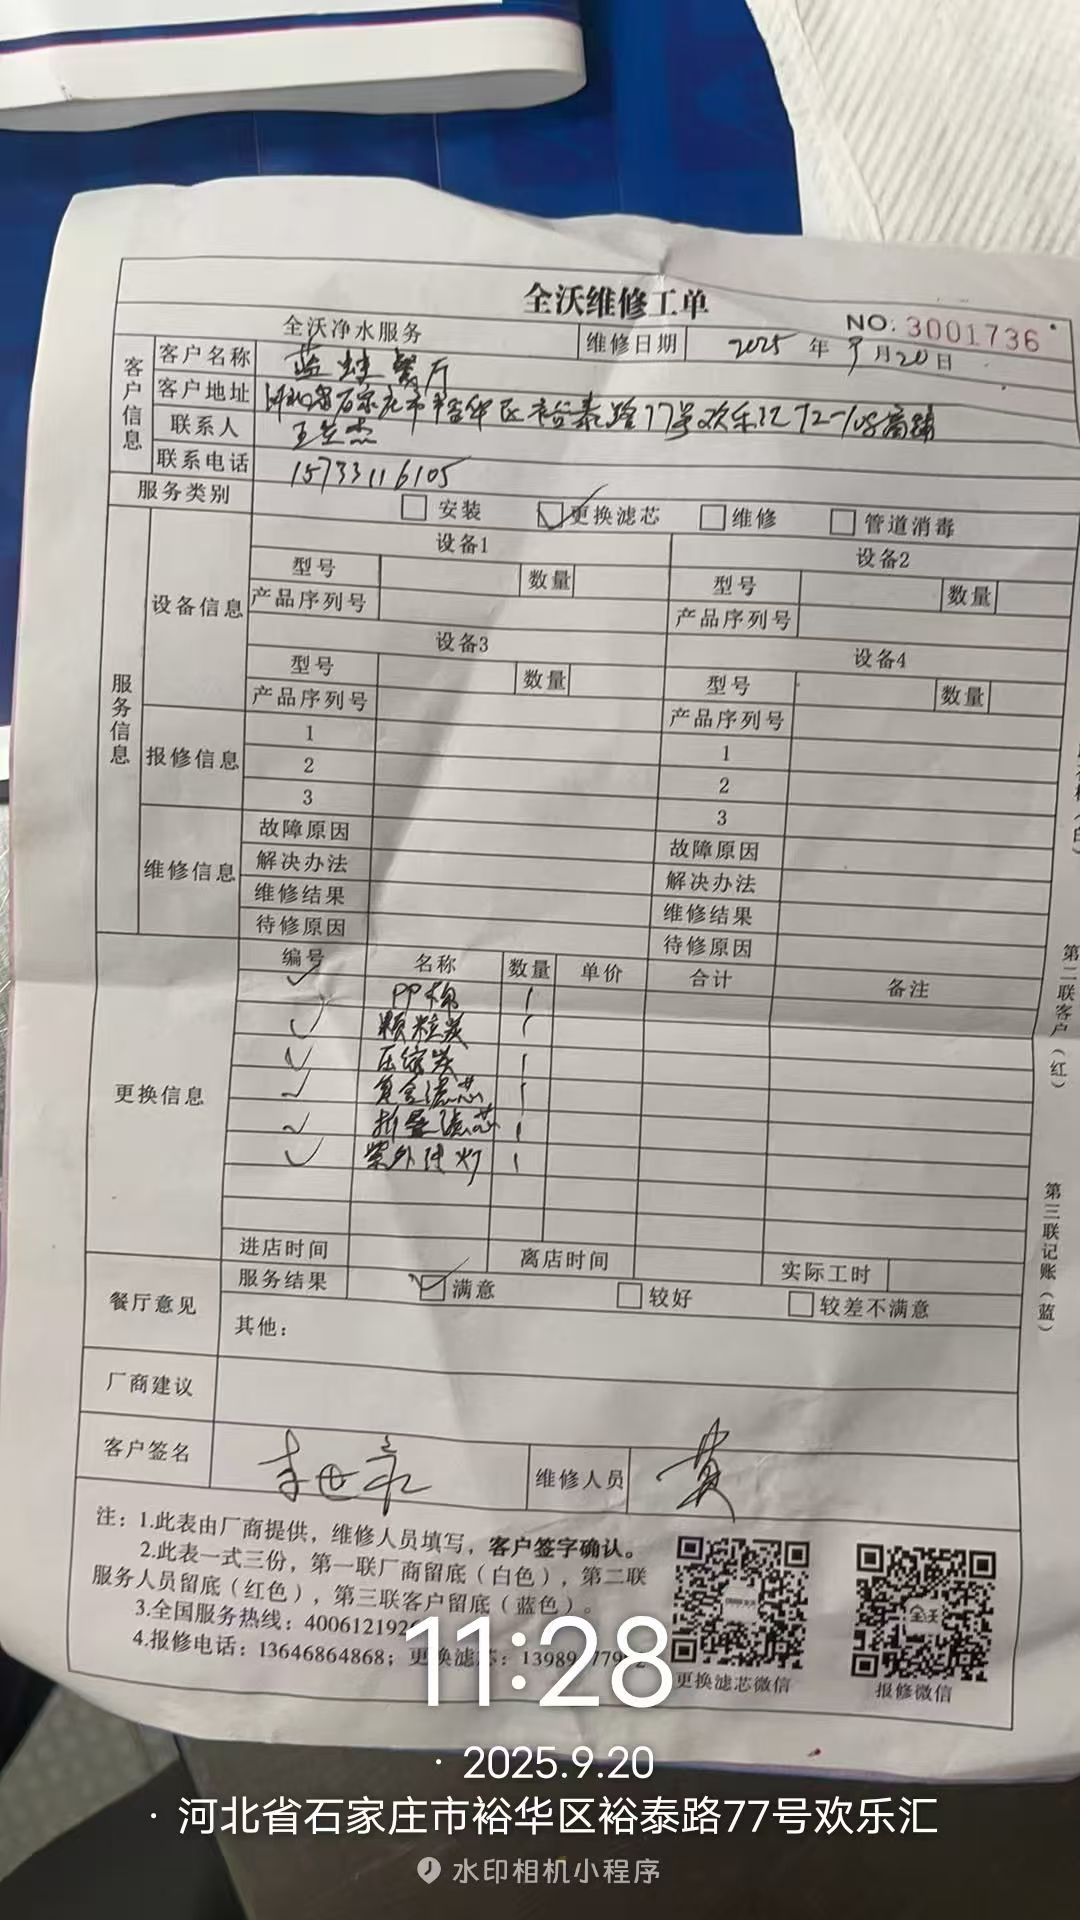 全沃维修工单
NO: 3001736
全沃净水服务 维修日期 2025 年 9 月 20 日
客户信息
客户名称 蓝蛙餐厅
客户地址 河北省石家庄市裕华区裕泰路77号欢乐汇 号商铺
联系人 王 杰
联系电话 15733116105
服务类别 安装 更换滤芯 维修 管道消毒
服务信息
设备信息
设备1 设备2
型号 数量 型号 数量
产品序列号 产品序列号
设备3 设备4
型号 数量 型号 数量
产品序列号 产品序列号
报修信息
1 1
2 2
3 3
维修信息
故障原因 故障原因
解决办法 解决办法
维修结果 维修结果
待修原因 待修原因
更换信息
编号 名称 数量 单价 合计 备注
✓ PP棉 1
✓ 颗粒炭 1
✓ 压缩炭 1
✓ 复合滤芯 1
✓ 折叠滤芯 1
✓ 紫外线灯 1
进店时间 离店时间 实际工时
餐厅意见
服务结果 ✓ 满意 较好 较差不满意
其他：
厂商建议
客户签名 维修人员 黄
第二联客户（红）
第三联记账（蓝）
注：1.此表由厂商提供，维修人员填写，客户签字确认。
2.此表一式三份，第一联厂商留底（白色），第二联
服务人员留底（红色），第三联客户留底（蓝色）。
3.全国服务热线：400612192
4.报修电话：13646864868；更换滤芯：1398
更换滤芯微信
全沃
报修微信
11:28
· 2025.9.20
· 河北省石家庄市裕华区裕泰路77号欢乐汇
水印相机小程序